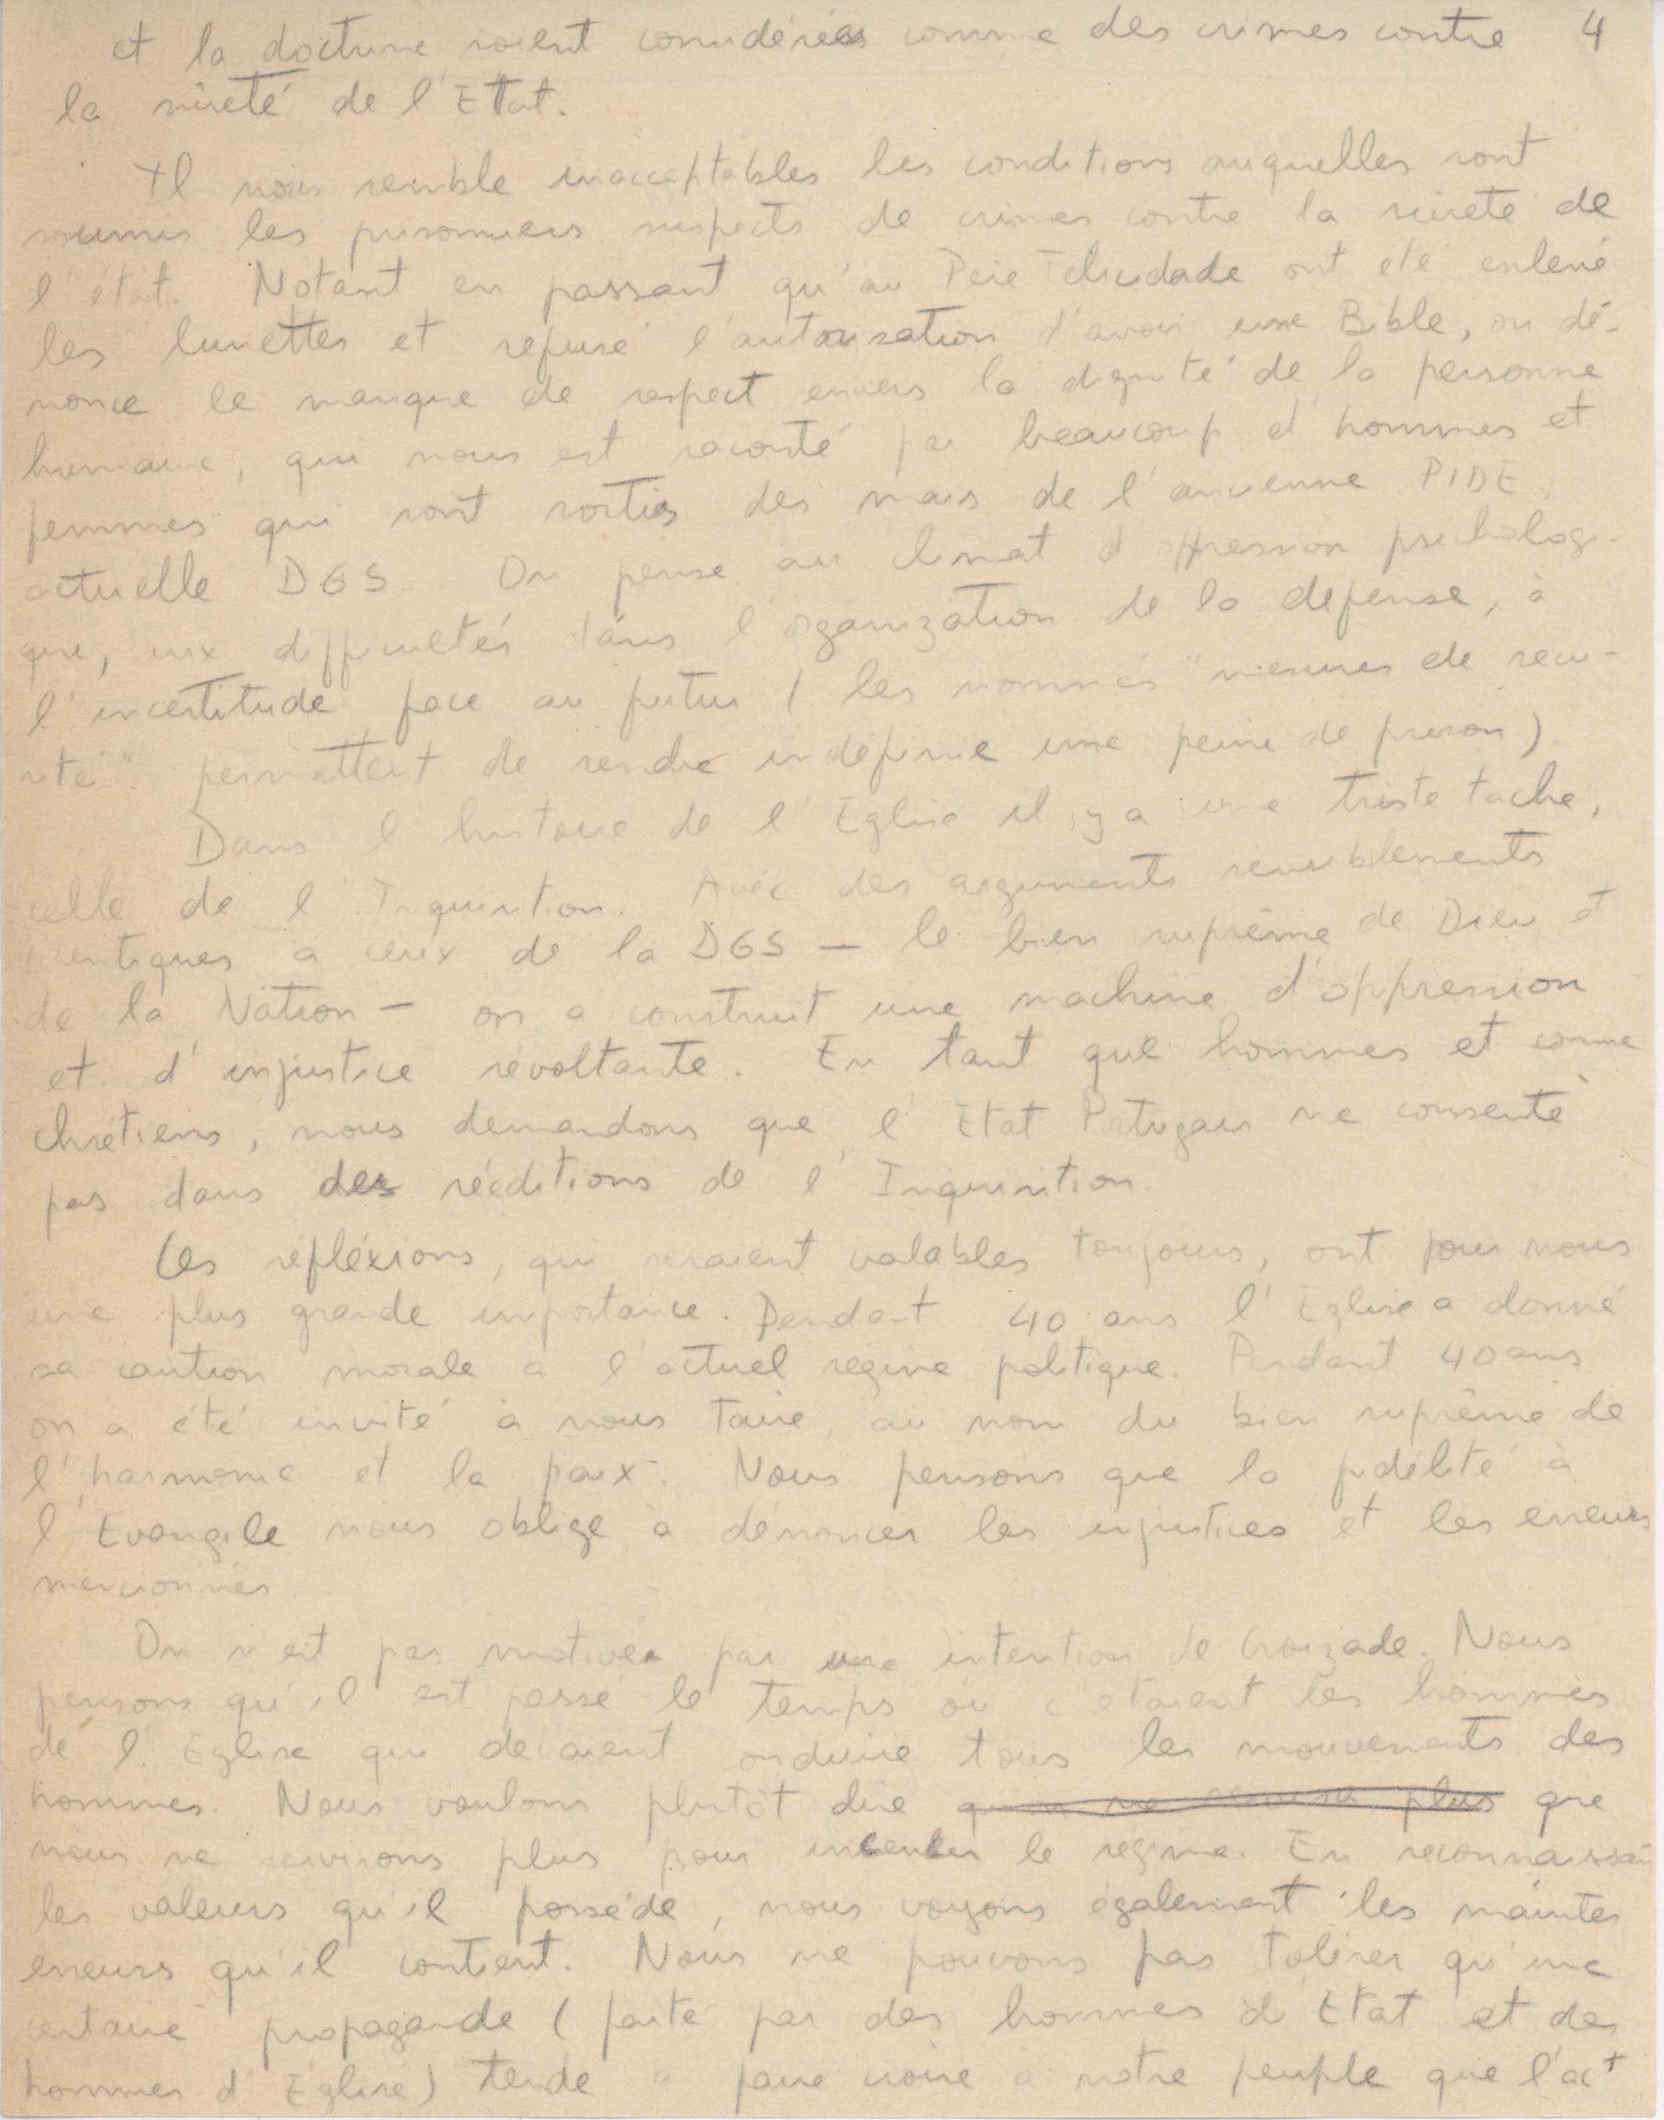 et la doctrine soient considérées comme des crimes contre 4
la sûreté de l'Etat.
Il nous semble inacceptables les conditions auquelles sont
soumis les prisonniers suspects de crimes contre la sûreté de
l'état. Notant en passant qu'au Père Felicidade ont été enlevé
les lunettes et refusé l'autorisation d'avoir une Bible, on dé-
nonce le manque de respect envers la dignité de la personne
humaine, qui nous est raconté par beaucoup d'hommes et
femmes qui sont sorties des mais de l'ancienne PIDE,
actuelle DGS. On pense au climat d'oppression psicholog-
que, aux difficultés dans l'organization de la défense, à
l'incertitude face au futur (les nommés "mesures de secu-
rité" permettent de rendre indéfinie une peine de prison)
Dans l'histoire de l'Eglise il y a une triste tache,
celle de l'Inquisition. Avec des arguments semiblements
identiques a ceux de la DGS — le bien suprême de Dieu et
de la Nation — on a construit une machine d'oppression
et d'injustice révoltante. En tant que hommes et comme
chrétiens, nous demandons que l'Etat Portugais ne consente
pas dans des rééditions de l'Inquisition.
Ces réfléxions, qui seraient valables toujours, ont pour nous
une plus grande importance. Pendant 40 ans l'Eglise a donné
sa caution morale a l'actuel régime politique. Pendant 40 ans
on a été invité à nous taire, au nom du bien suprême de
l'harmonie et la paix. Nous pensons que la fidélité à
l'Evangile nous oblige à dénoncer les injustices et les erreurs
mencionnés.
On n'est pas motivés par une intention de Croizade. Nous
pensons qu'il est passé le temps où c'étaient les hommes
de l'Eglise qui devaient onduire tous les mouvements des
hommes. Nous voulons plutôt dire qu'on ne servira plus que
nous ne servirons plus pour le régime. En reconnaissant
les valeurs qu'il posséde, nous voyons également les maintes
erreurs qu'il contient. Nous ne pouvons pas tolérer qu'une
certaine propagande (faite par des hommes d'Etat et des
hommes d'Eglise) tende a faire croire à notre peuple que l'act